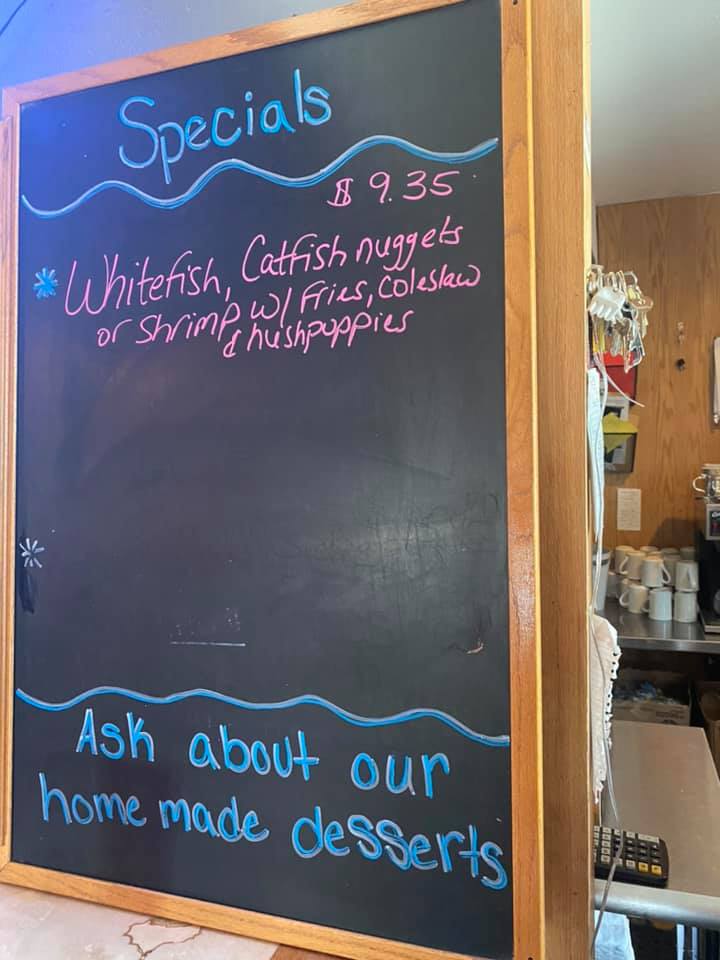 Specials
$ 9.35
* Whitefish, Catfish nuggets
or Shrimp w/ Fries, Coleslaw
& hushpuppies
*
Ask about our
home made desserts